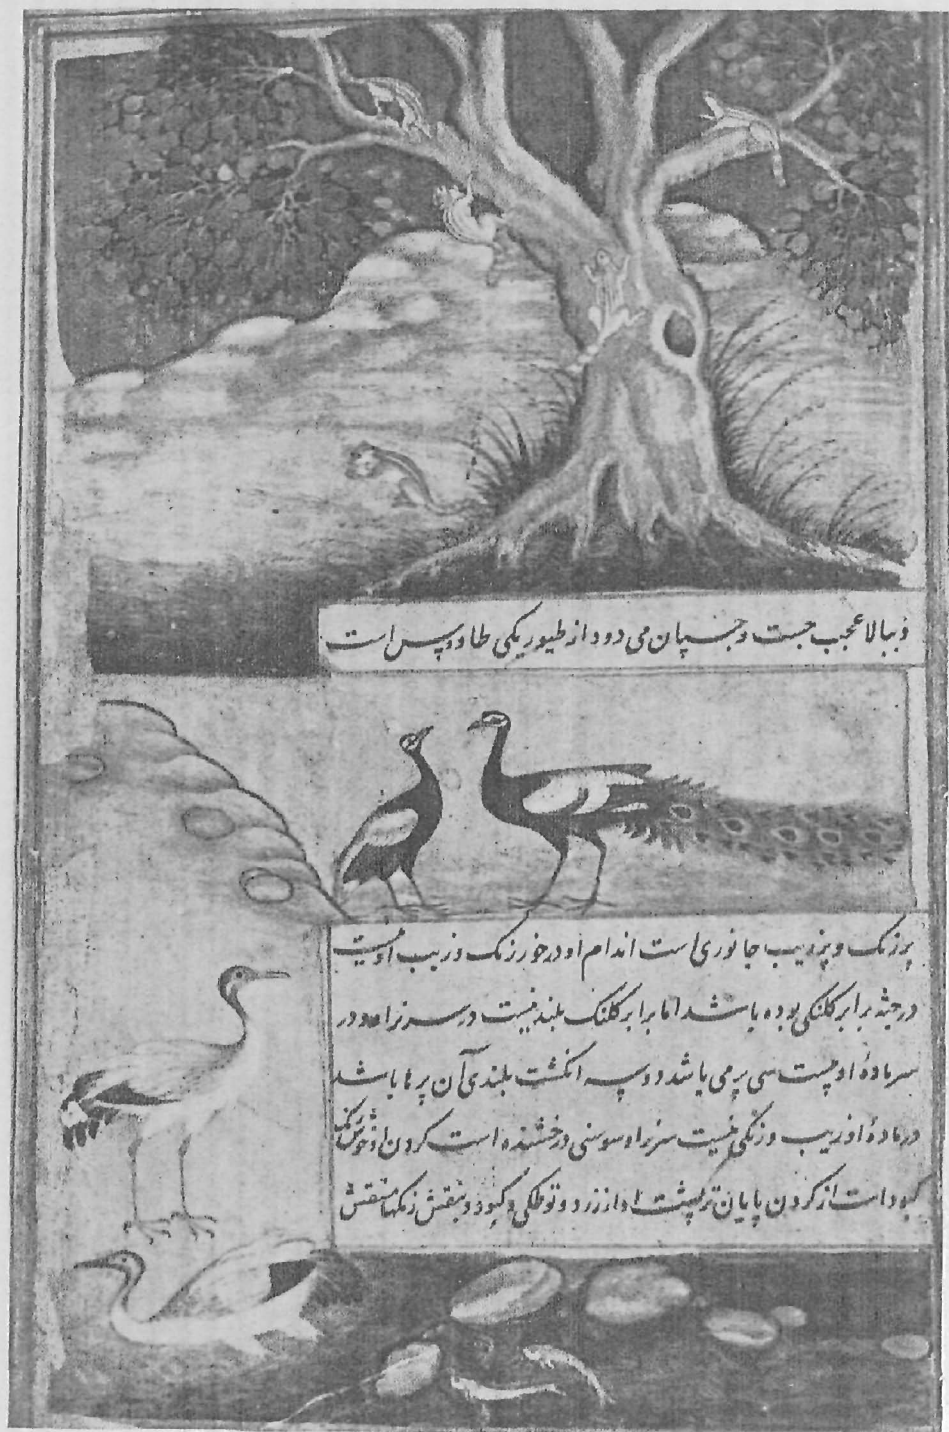 و ببالا عجب جست و چسپان می دود از طیور یکی طاووس است
پر زنک و پرزیب جانوری است اندام او درخور زنک و زیب او نیست
در جثه برابر کلنکی بوده باشد اما برابر کلنک بلند نیست در سر نر او و در
سر مادهٔ او بیست سی پر می باشد دو سه انکشت بلندی آن پرها باشد
در مادهٔ او زیب و زنکی نیست سر نر او سوسنی درخشنده است کردن او خوش رنک
کبود است از کردن پایان تر پشت او از زرد و طوطکی و کبود و بنفش زنکها منقش